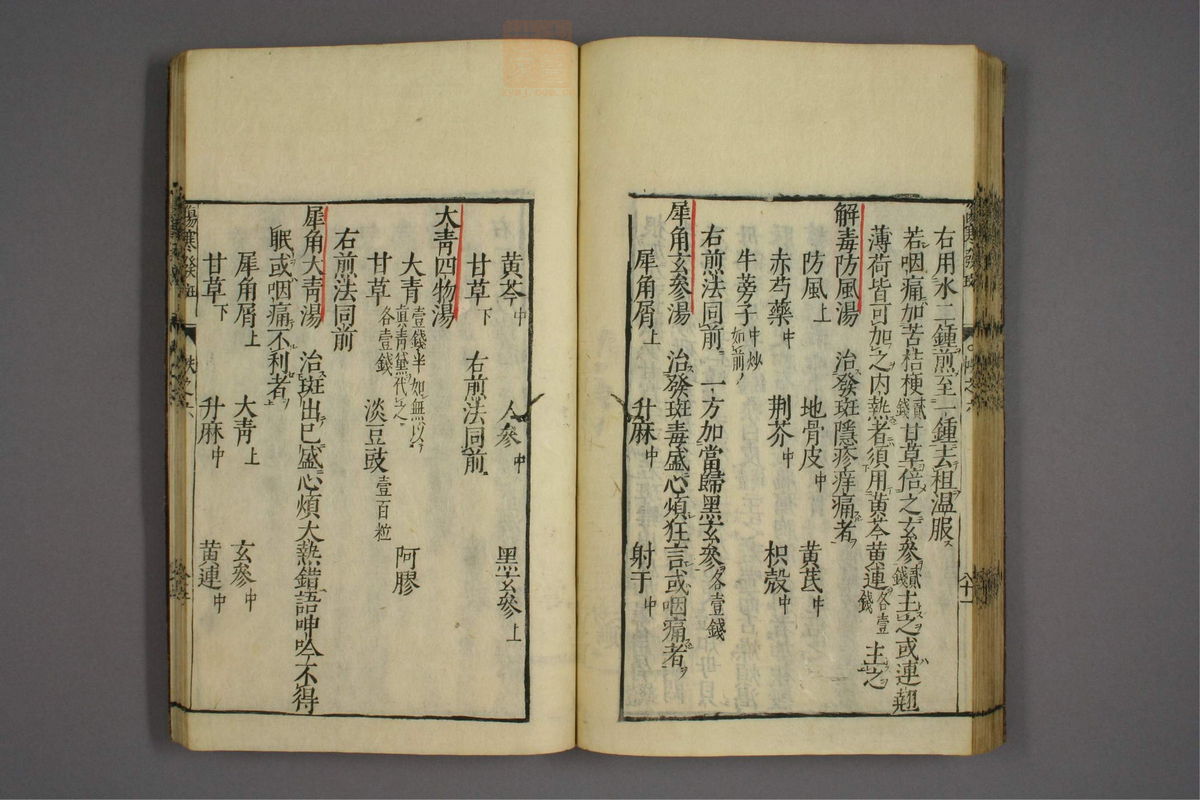 右用水二鍾煎至一鍾去柤温服
若咽痛加苦桔梗貳錢甘草倍之玄參貳錢主之或連翹
薄荷皆可加之内熱者須用黄芩黄連各壹錢主之
解毒防風湯 治發斑隱疹痒痛者
防風上 地骨皮中 黄芪中
赤芍藥中 荆芥中 枳殼中
牛蒡子中炒如前
右煎法同前 一方加當歸黑玄參各壹錢
犀角玄參湯 治發斑毒盛心煩狂言或咽痛者
犀角屑上 升麻中 射干中
黄芩中 人參中 黑玄參上
甘草下 右煎法同前
大靑四物湯
大青壹錢半如無以真青黛代之 阿膠
甘草各壹錢 淡豆豉壹百粒
右煎法同前
犀角大靑湯 治斑出已盛心煩大熱錯語呻吟不得
眠或咽痛不利者
犀角屑上 大青上 玄參中
甘草下 升麻中 黄連中
傷寒發斑